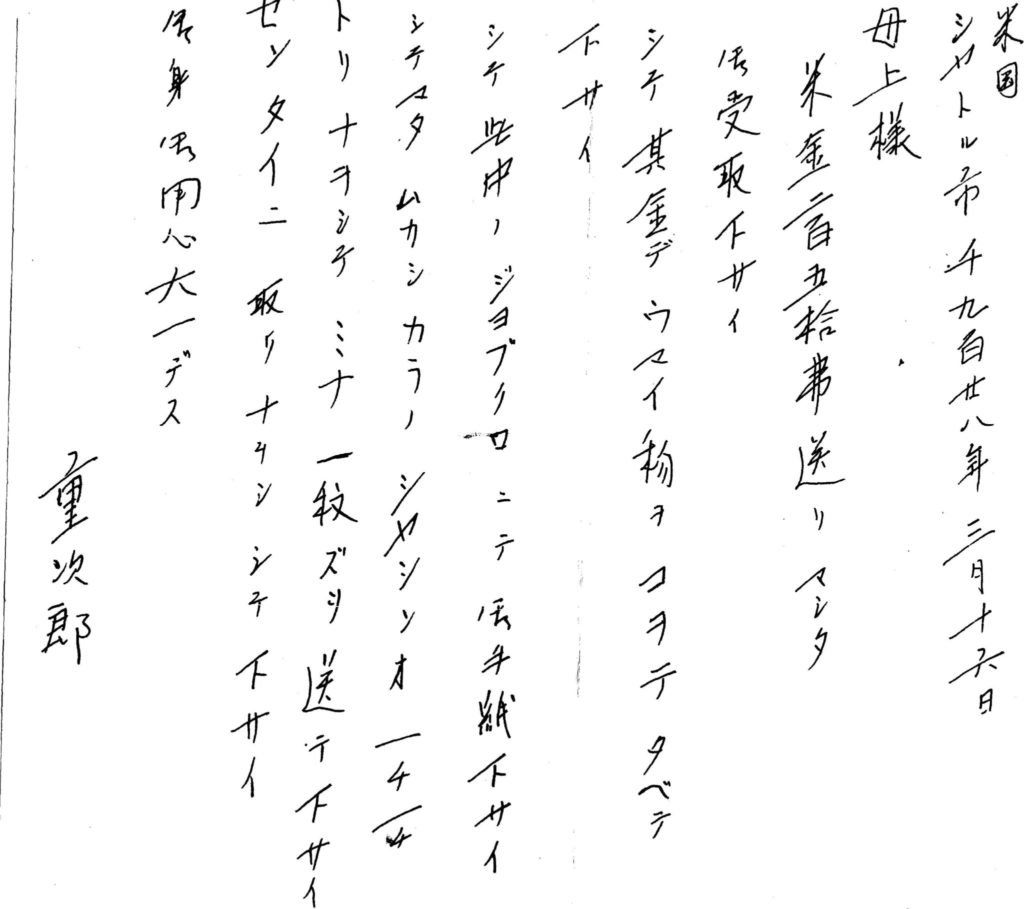 米国
シヤトル市 千九百廿八年 三月十六日
母上様
米金二百五拾弗 送リ マシタ
御受取下サイ
シテ 其金デ ウマイ 物ヲ コヲテ タベテ
下サイ
シテ 此中ノ ジヨブクロ ニテ 御手紙下サイ
シテマタ ムカシ カラノ シヤシンオ 一チ一チ
トリ ナヲシテ ミナ 一枚 ズツ 送テ 下サイ
ゼンタイニ 取リ ナヲシ シテ 下サイ
御身御用心大一デス
重次郎